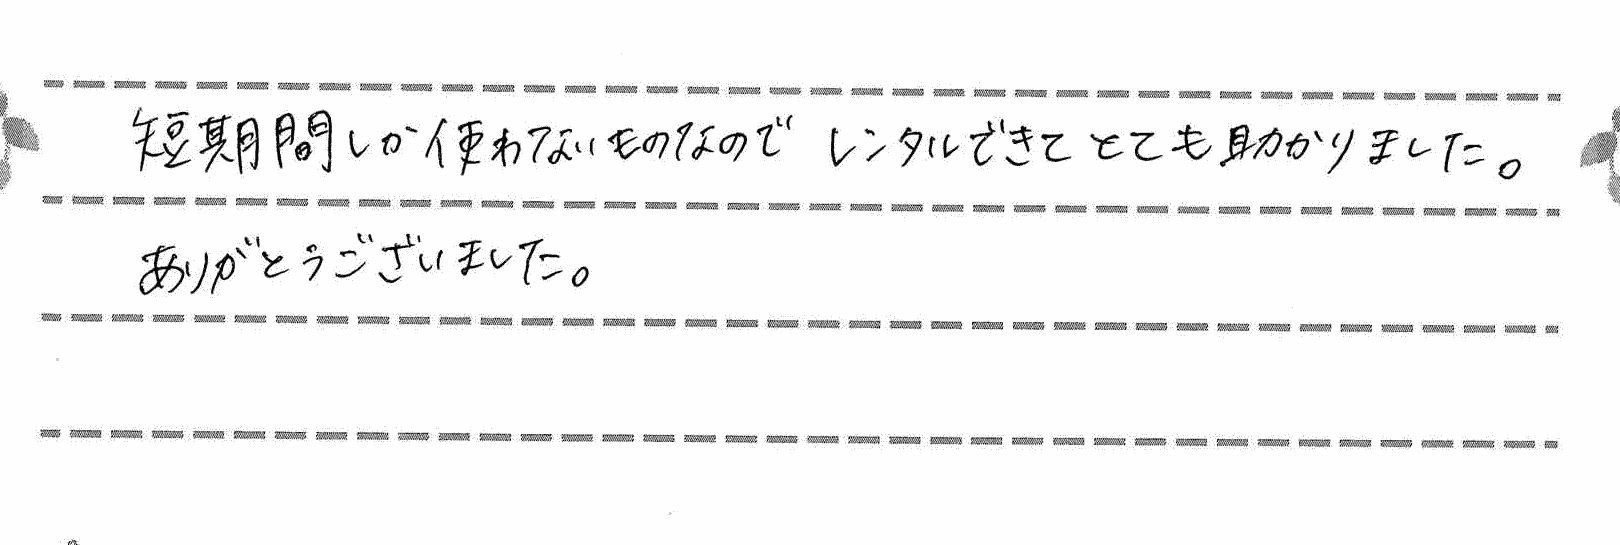 短期間しか使わないものなので レンタルできてとても助かりました。
ありがとうございました。